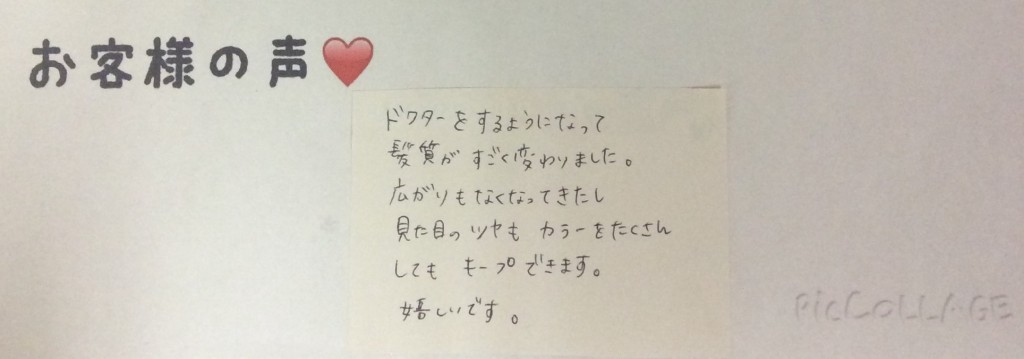 お客様の声❤
ドクターをするようになって
髪質がすごく変わりました。
広がりもなくなってきたし
見た目のツヤも カラーをたくさん
しても キープできます。
嬉しいです。
PicCOLLAGE